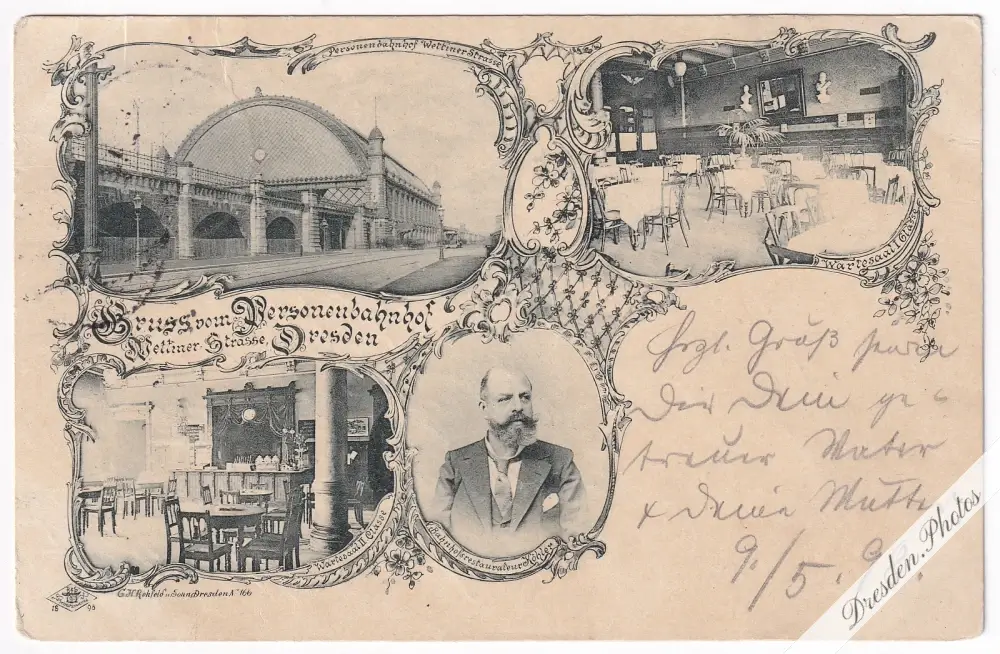 Personenbahnhof Wettiner Strasse
Wartesaal I Classe
Gruss vom Personenbahnhof
Wettiner-Strasse, Dresden
Wartesaal II Classe
Bahnhofsrestaurateur Köhler
18 96
Dresden No 166
Hrzl. Gruß
Dir Dein ge-
treuer Vater
& Deine Mutte
9./5.
Dresden.Photos